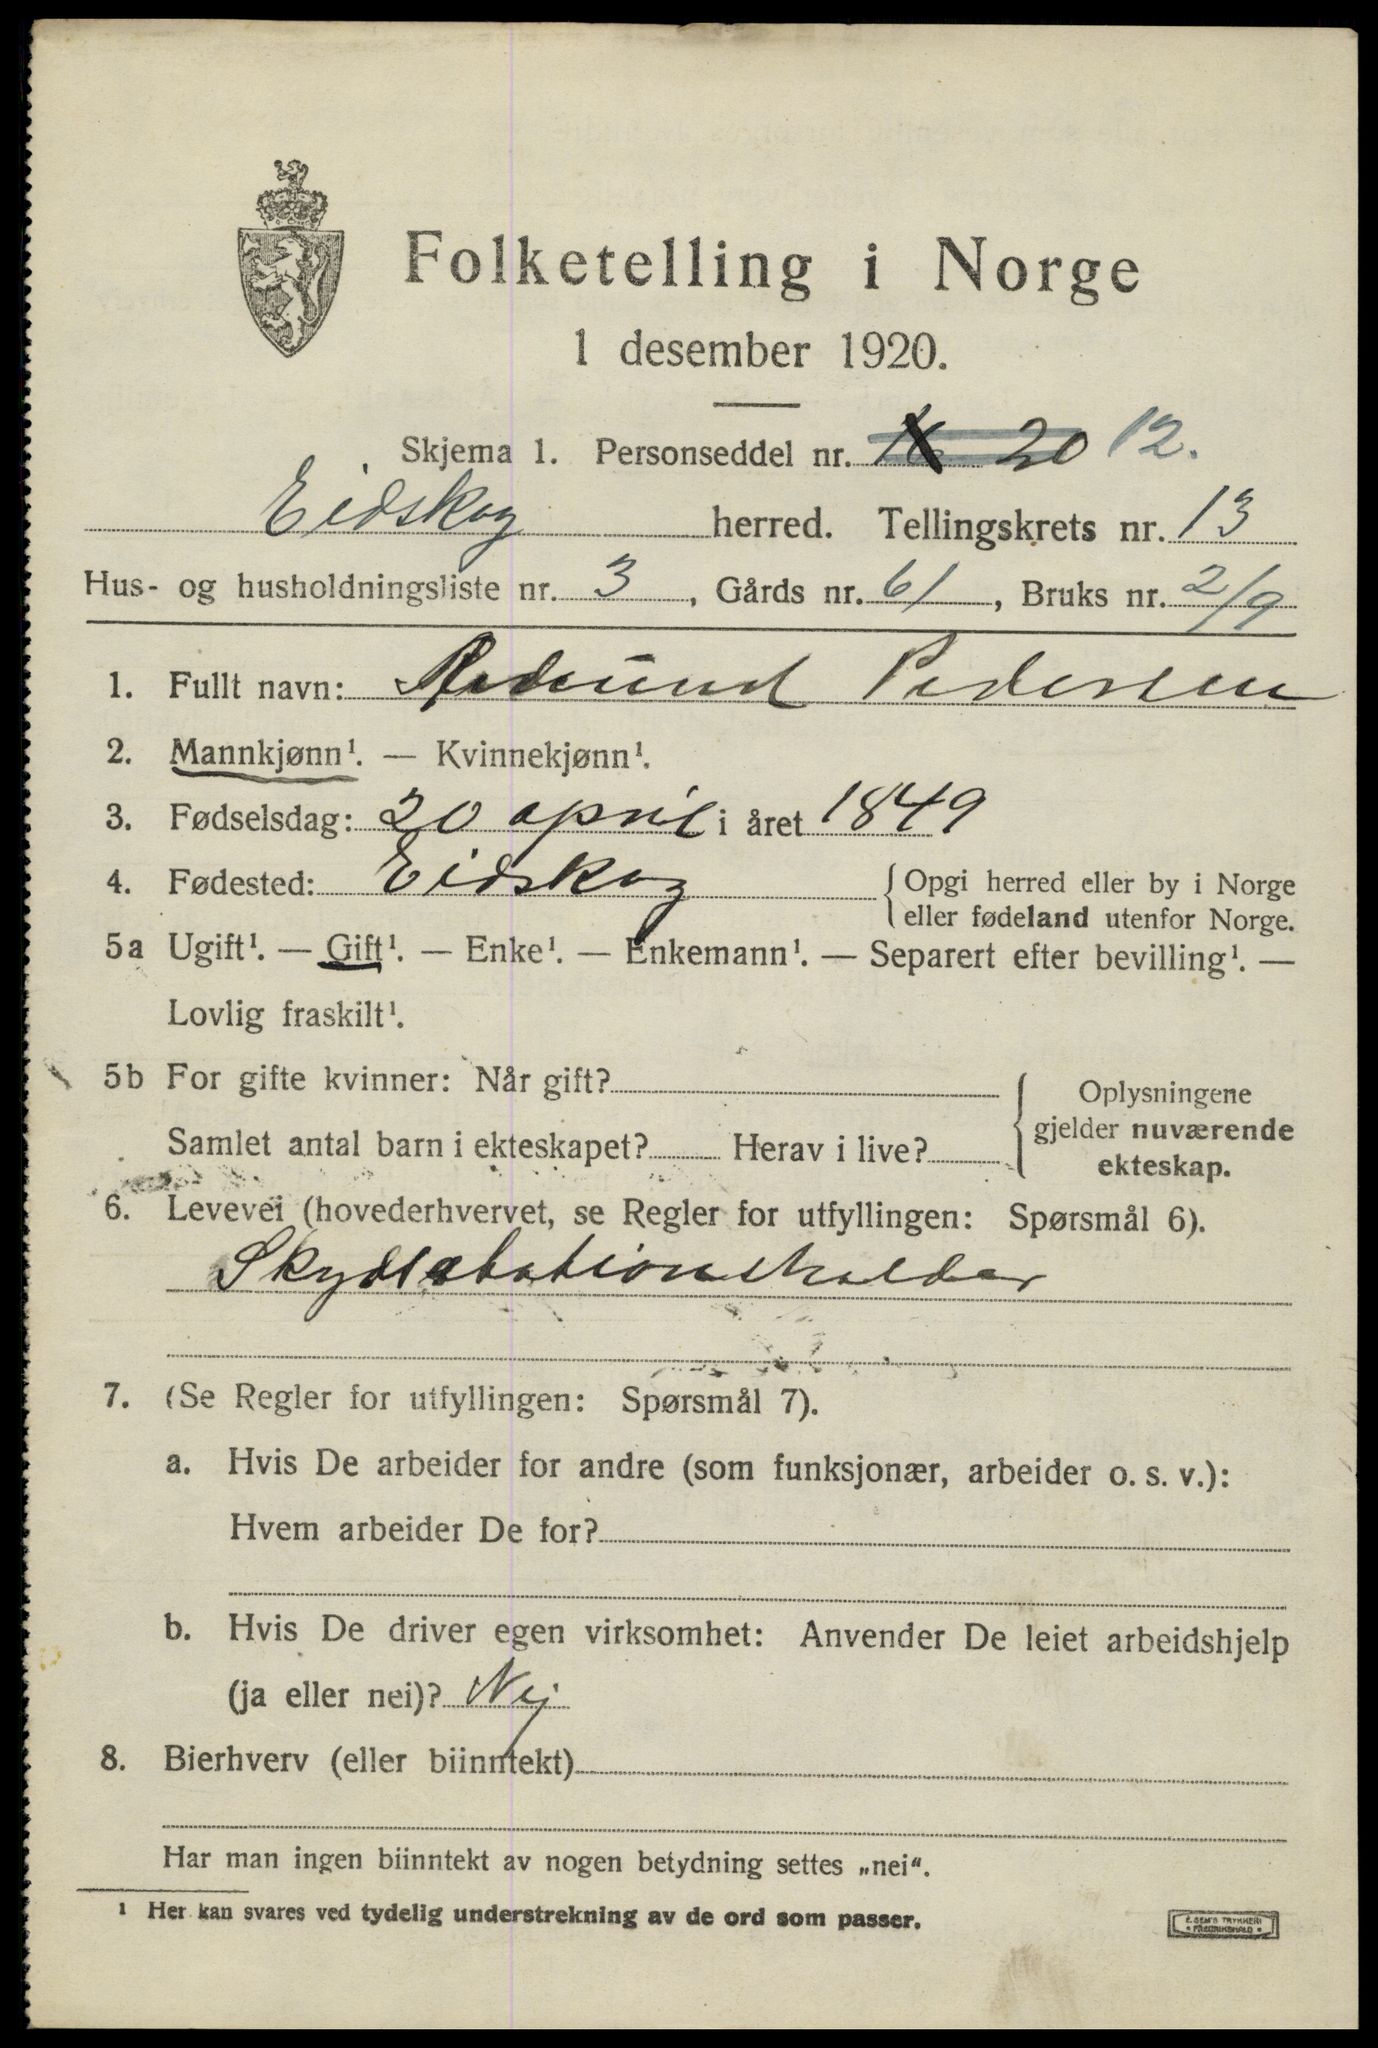 Folketelling i Norge
1 desember 1920.
Skjema 1. Personseddel nr. 20 12.
Eidskog herred. Tellingskrets nr. 13
Hus- og husholdningsliste nr. 3, Gårds nr. 61, Bruks nr. 2/9
1. Fullt navn: Pedersen
2. Mannkjønn¹. — Kvinnekjønn¹.
3. Fødselsdag: 20 april i året 1849
4. Fødested: Eidskog {Opgi herred eller by i Norge
eller fødeland utenfor Norge.
5a Ugift¹. — Gift¹. — Enke¹. — Enkemann¹. — Separert efter bevilling¹. —
Lovlig fraskilt¹.
5b For gifte kvinner: Når gift?
Samlet antal barn i ekteskapet? Herav i live?
Oplysningene
gjelder nuværende
ekteskap.
6. Levevei (hovederhvervet, se Regler for utfyllingen: Spørsmål 6).
Skydsstationsholder
7. (Se Regler for utfyllingen: Spørsmål 7).
a. Hvis De arbeider for andre (som funksjonær, arbeider o. s. v.):
Hvem arbeider De for?
b. Hvis De driver egen virksomhet: Anvender De leiet arbeidshjelp
(ja eller nei)? Nej
8. Bierhverv (eller biinntekt)
Har man ingen biinntekt av nogen betydning settes „nei“.
¹ Her kan svares ved tydelig understrekning av de ord som passer.
E. SEM'S TRYKKERI
* FREDRIKSHALD *